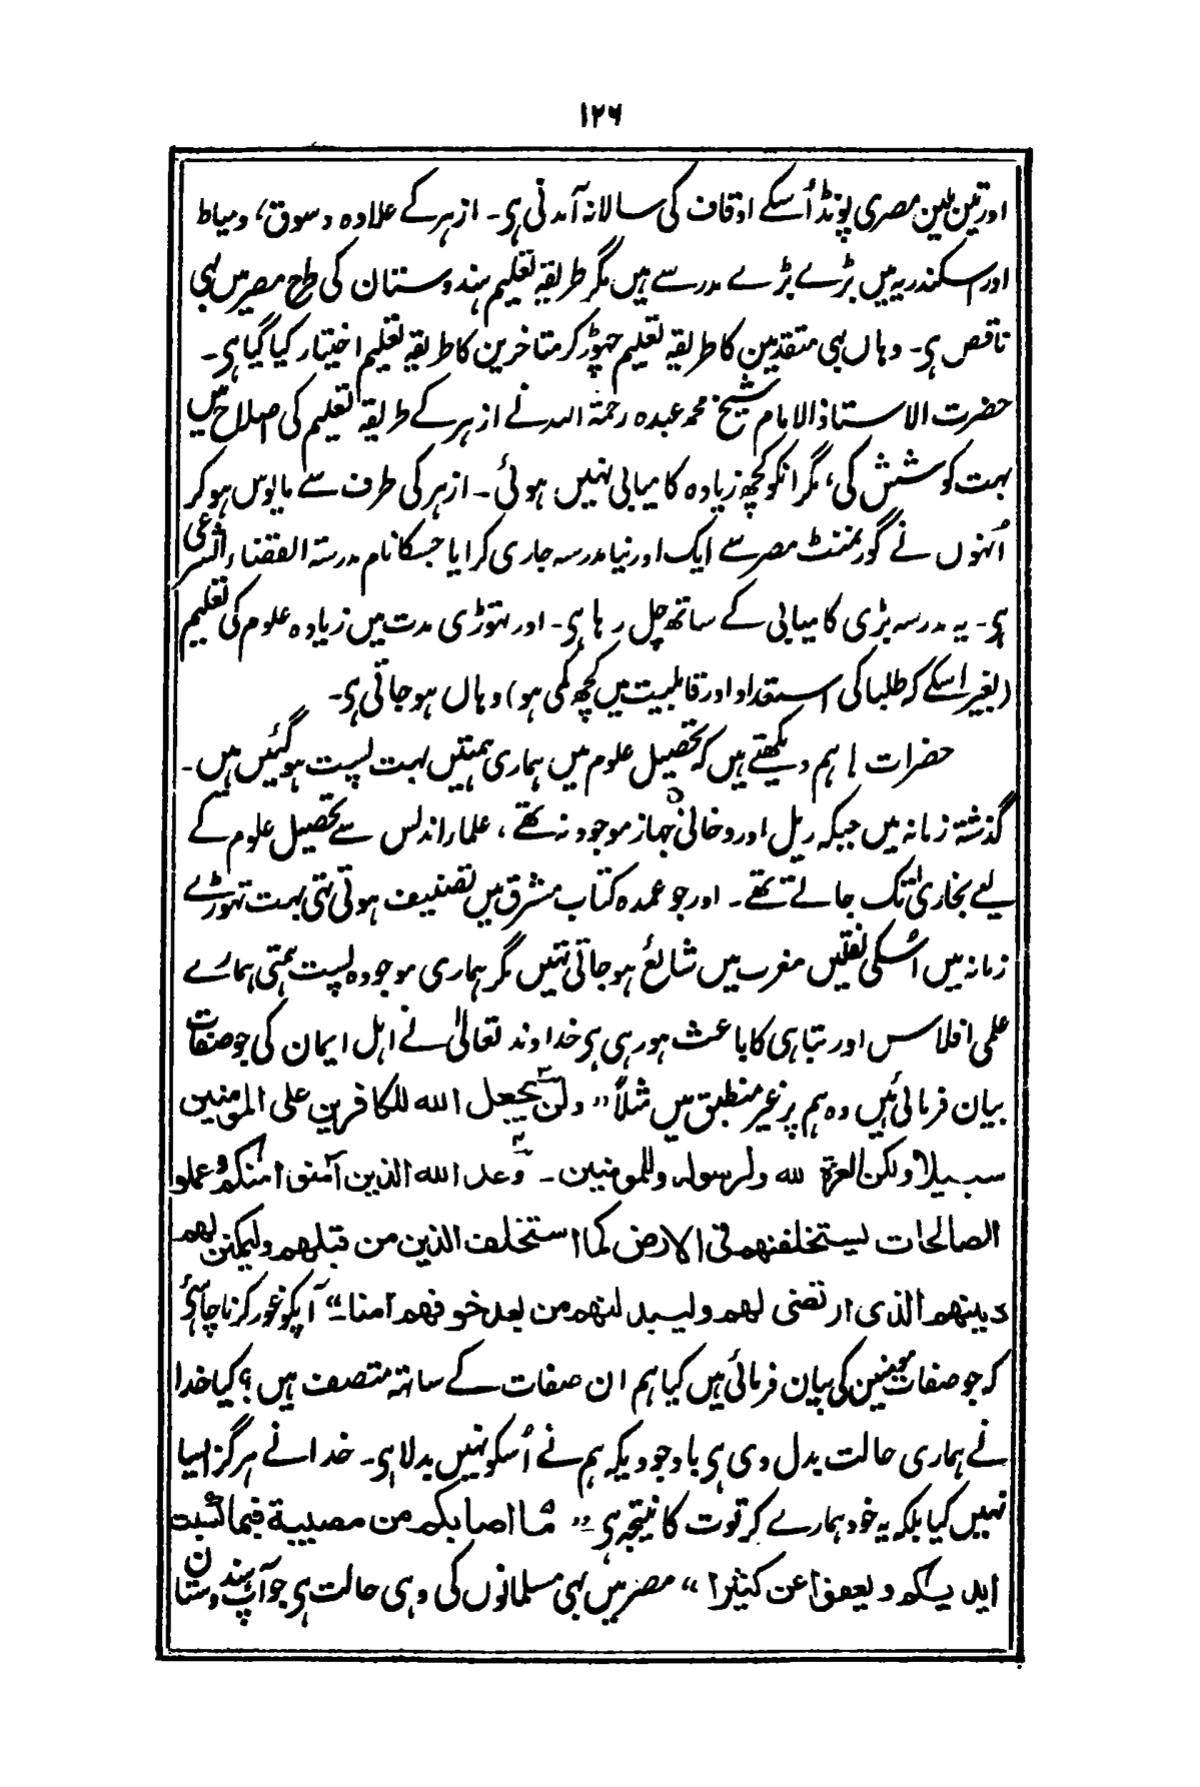 ۱۲۶
اور تین ملین مصری پونڈ اُسکے اوقاف کی سالانہ آمدنی ہی۔ ازہر کے علاوہ دسوق، دمیاط
اور اسکندریہ میں بڑے بڑے مدرسے ہیں مگر طریقہ تعلیم ہندوستان کی طرح مصر میں بہی
ناقص ہی۔ وہاں بہی متقدمین کا طریقہ تعلیم چہوڑ کر متاخرین کا طریقہ تعلیم اختیار کیا گیا ہی۔
حضرت الاستاذ الامام شیخ محمد عبدہ رحمۃ اللہ نے ازہر کے طریقہ تعلیم کی اصلاح میں
بہت کوشش کی، مگر انکو کچھ زیادہ کامیابی نہیں ہوئی۔ ازہر کی طرف سے مایوس ہو کر
اُنہوں نے گورنمنٹ مصر سے ایک اور نیا مدرسہ جاری کرایا جسکا نام مدرسۃ القضاء الشرعی
ہی۔ یہ مدرسہ بڑی کامیابی کے ساتھ چل رہا ہی۔ اور تہوڑی مدت میں زیادہ علوم کی تعلیم
(بغیر اسکے کہ طلبا کی استعداد اور قابلیت میں کچھ کمی ہو) وہاں ہو جاتی ہی۔
حضرات! ہم دیکھتے ہیں کہ تحصیل علوم میں ہماری ہمتیں بہت پست ہو گئیں ہیں۔
گذشتہ زمانہ میں جبکہ ریل اور دخانی جہاز موجود نہ تھے، علماء اندلس سے تحصیل علوم کے
لیے بخاریٰ تک جاتے تھے۔ اور جو عمدہ کتاب مشرق میں تصنیف ہوتی تہی بہت تہوڑے
زمانہ میں اُسکی نقلیں مغرب میں شائع ہو جاتی تہیں مگر ہماری موجودہ پست ہمتی ہمارے
علمی افلاس اور تباہی کا باعث ہو رہی ہی خداوند تعالیٰ نے اہل ایمان کی جو صفات
بیان فرمائی ہیں وہ ہم پر غیر منطبق ہیں مثلاً ”ولن یجعل الله للكافرین علی المومنین
سبیلا ولکن العزة لله ولرسوله وللمومنین۔ وعد الله الذین آمنوا منکم وعملوا
الصالحات لیستخلفنهم فی الارض کما استخلف الذین من قبلهم ولیمکنن لهم
دینهم الذی ارتضی لهم ولیبدلنهم من بعد خوفهم آمنا۔“ آپکو غور کرنا چاہئے
کہ جو صفات مومنین کی بیان فرمائی ہیں کیا ہم ان صفات کے ساتہ متصف ہیں؟ کیا خدا
نے ہماری حالت بدل دی ہی باوجودیکہ ہم نے اُسکو نہیں بدلا ہی۔ خدا نے ہرگز ایسا
نہیں کیا بلکہ یہ خود ہمارے کرتوت کا نتیجہ ہی۔ ”ما اصابکم من مصیبة فبما کسبت
ایدیکم ویعفوا عن کثیرا“ مصر میں بہی مسلمانوں کی وہی حالت ہی جو آپ ہندوستان